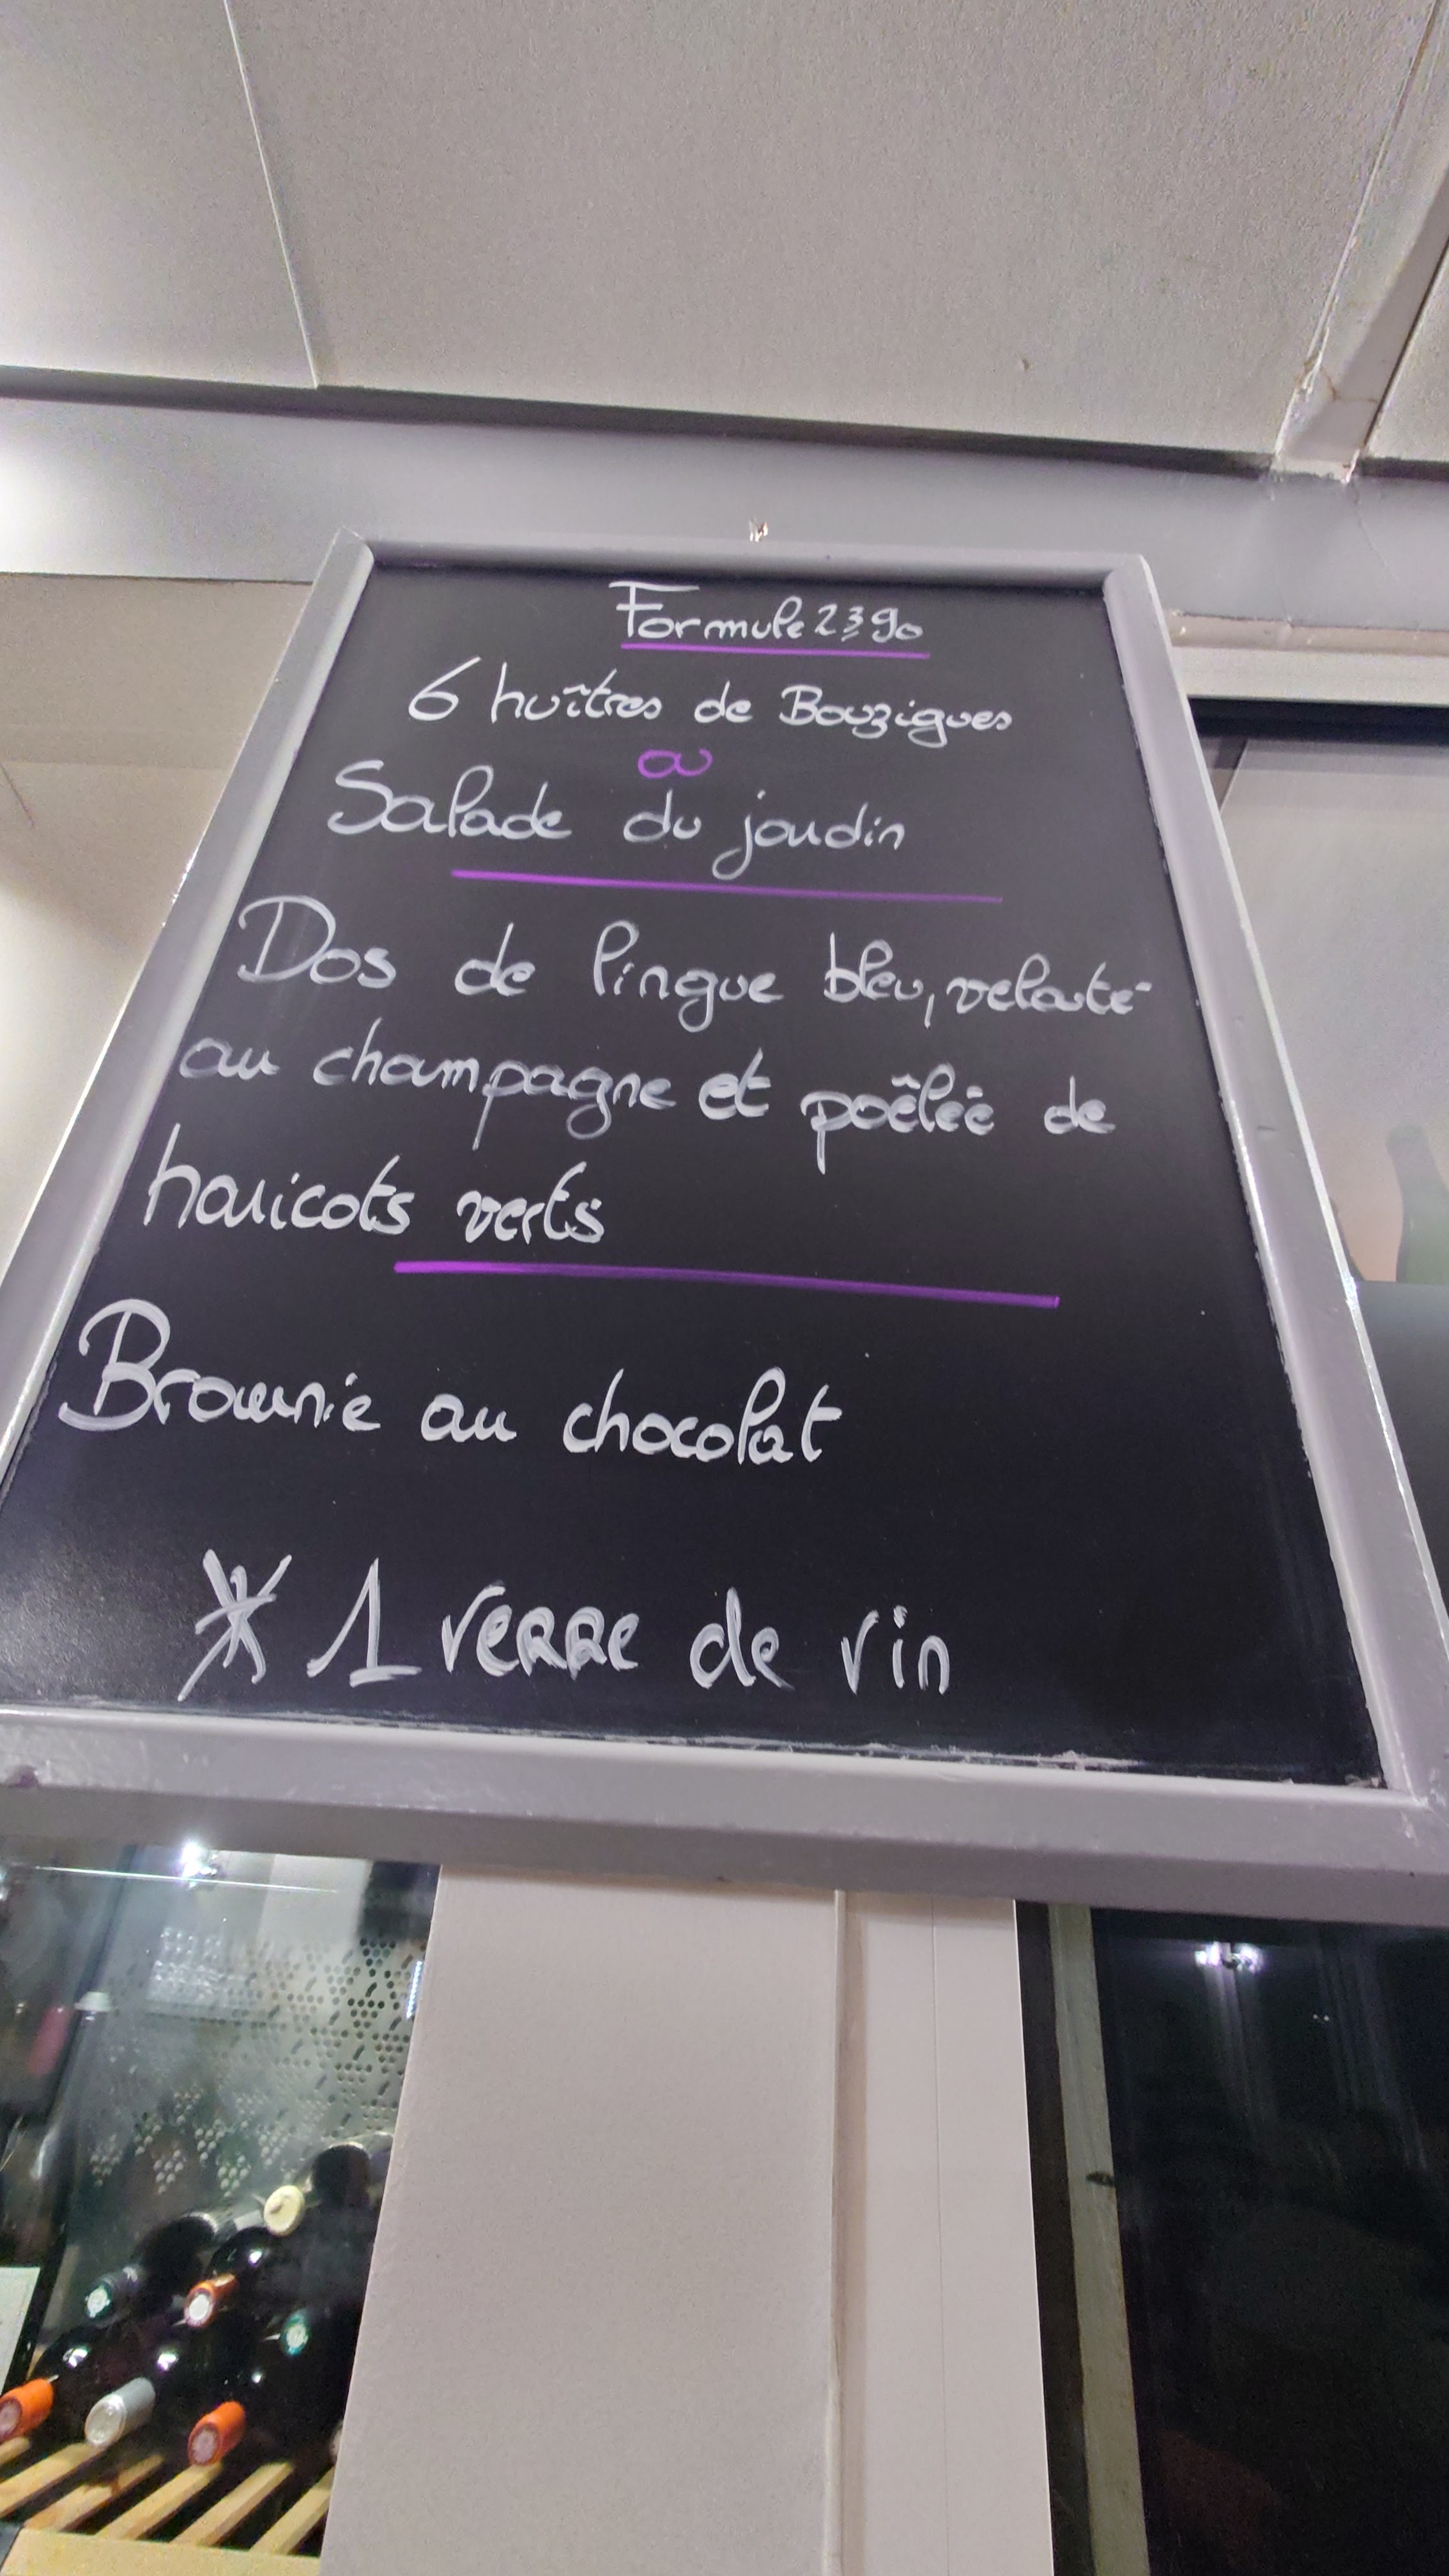 Formule 23,90
6 huîtres de Bouzigues
ou
Salade du jardin
Dos de lingue bleu, velouté
au champagne et poêlée de
haricots verts
Brownie au chocolat
* 1 verre de vin